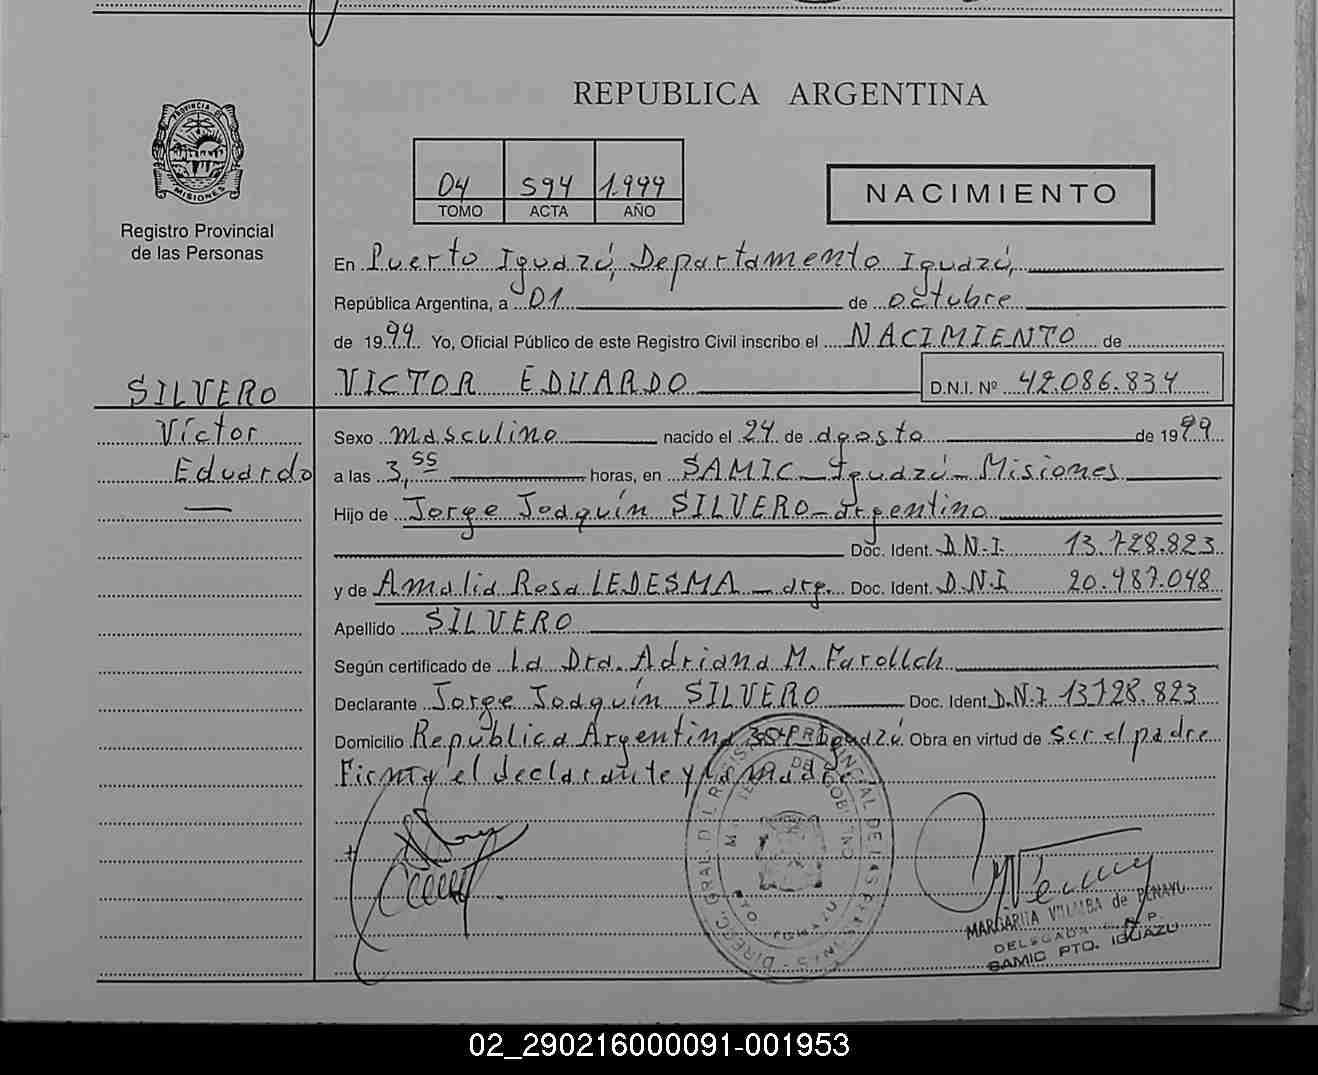 REPUBLICA ARGENTINA
PROVINCIA DE
MISIONES
Registro Provincial
de las Personas
04 594 1.999
TOMO ACTA AÑO
NACIMIENTO
En Puerto Iguazú, Departamento Iguazú,
República Argentina, a 01 de octubre
de 1999 Yo, Oficial Público de este Registro Civil inscribo el NACIMIENTO de
VICTOR EDUARDO D.N.I. Nº 42.086.834
SILVERO
Víctor
Eduardo
Sexo masculino nacido el 24 de agosto de 1999
a las 3,55 horas, en SAMIC - Iguazú - Misiones
Hijo de Jorge Joaquín SILVERO - argentino
Doc. Ident. D.N.I. 13.728.823
y de Amalia Rosa LEDESMA - arg. Doc. Ident. D.N.I 20.987.048
Apellido SILVERO
Según certificado de la Dra. Adriana M.
Declarante Jorge Joaquín SILVERO Doc. Ident D.N.I 13728.823
Domicilio República Argentina Iguazú. Obra en virtud de ser el padre
Firma el declarante y la madre
MARGARITA VILLALBA de
DELEGADA
SAMIC PTO. IGUAZU
02_290216000091-001953